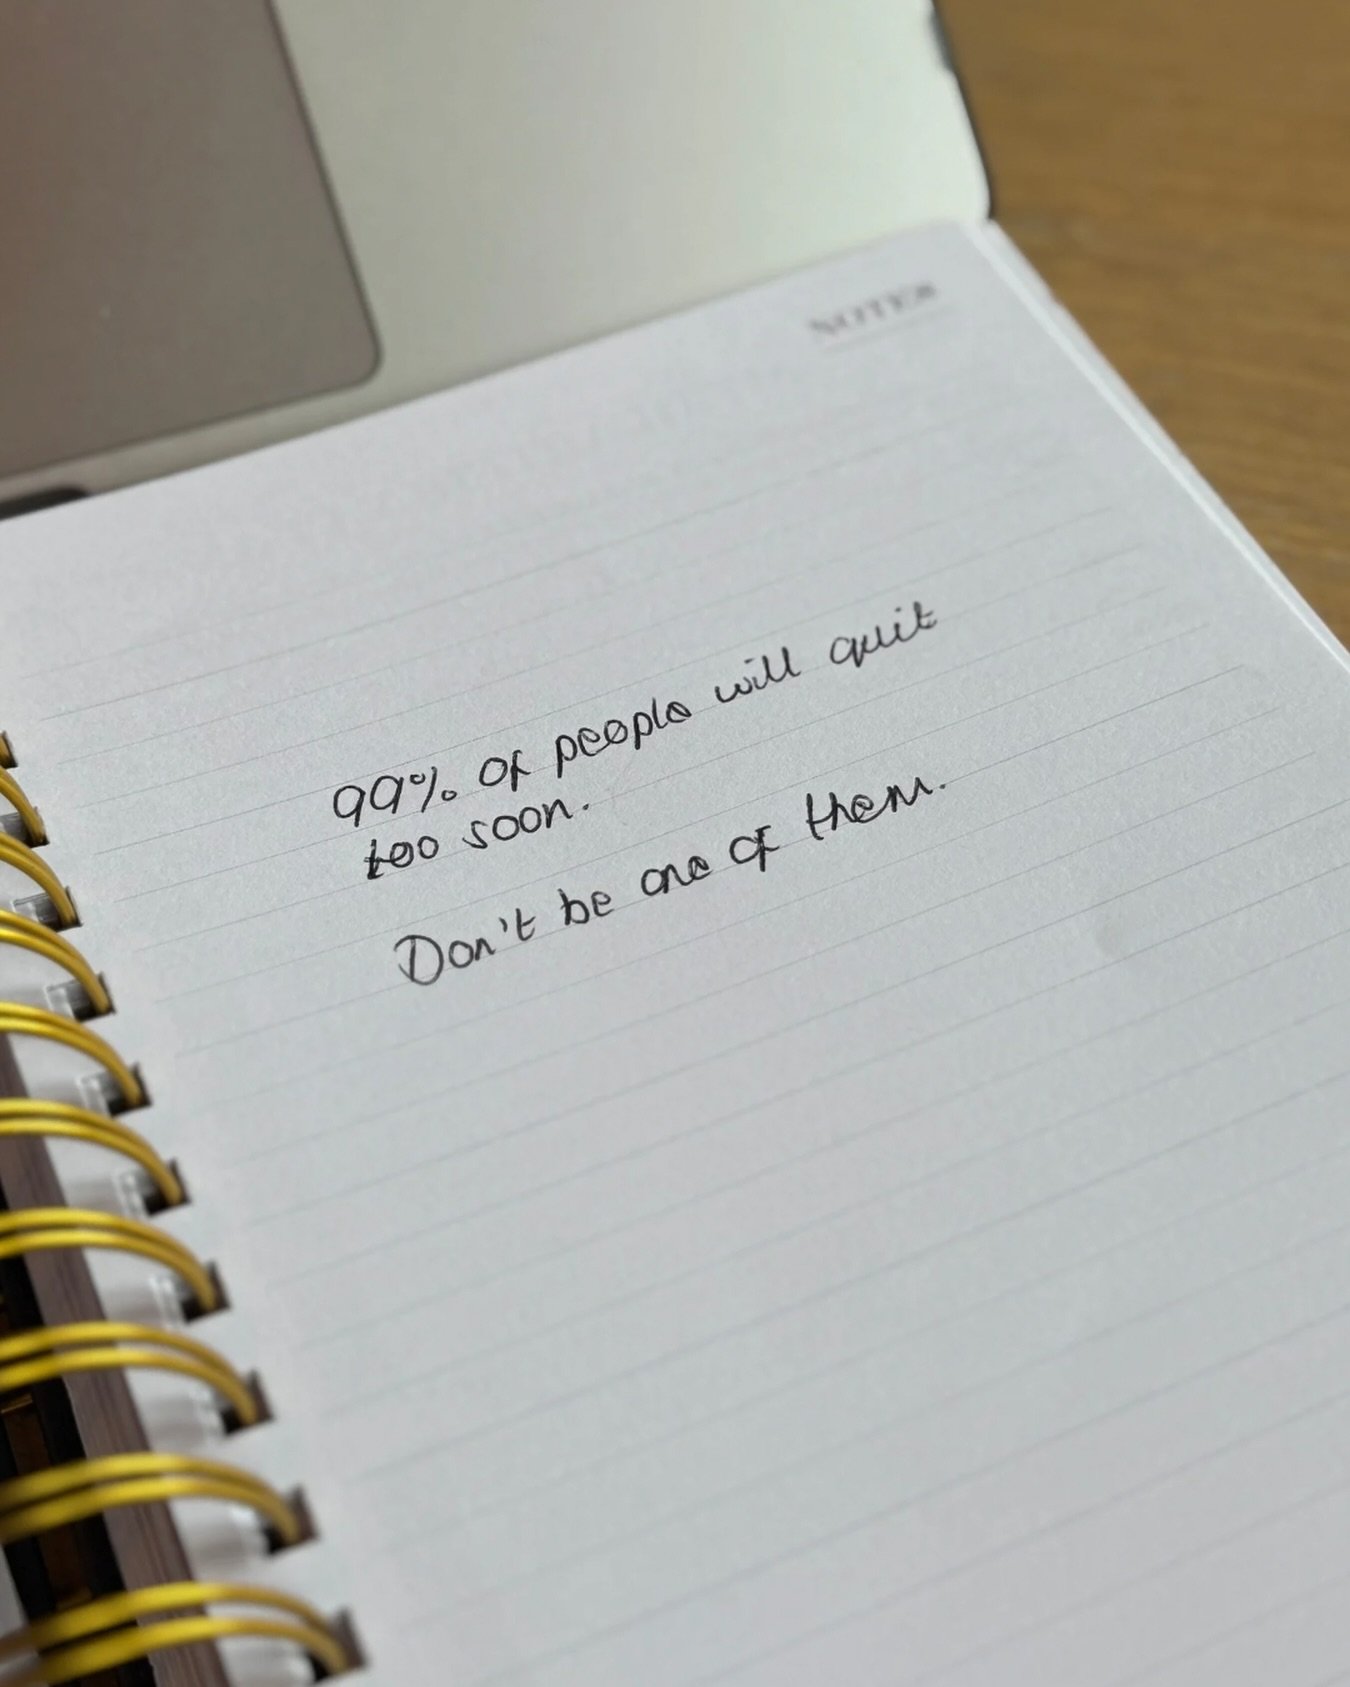 NOTES
99% of people will quit
too soon.
Don't be one of them.